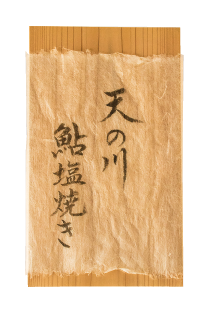 天の川
鮎塩焼き